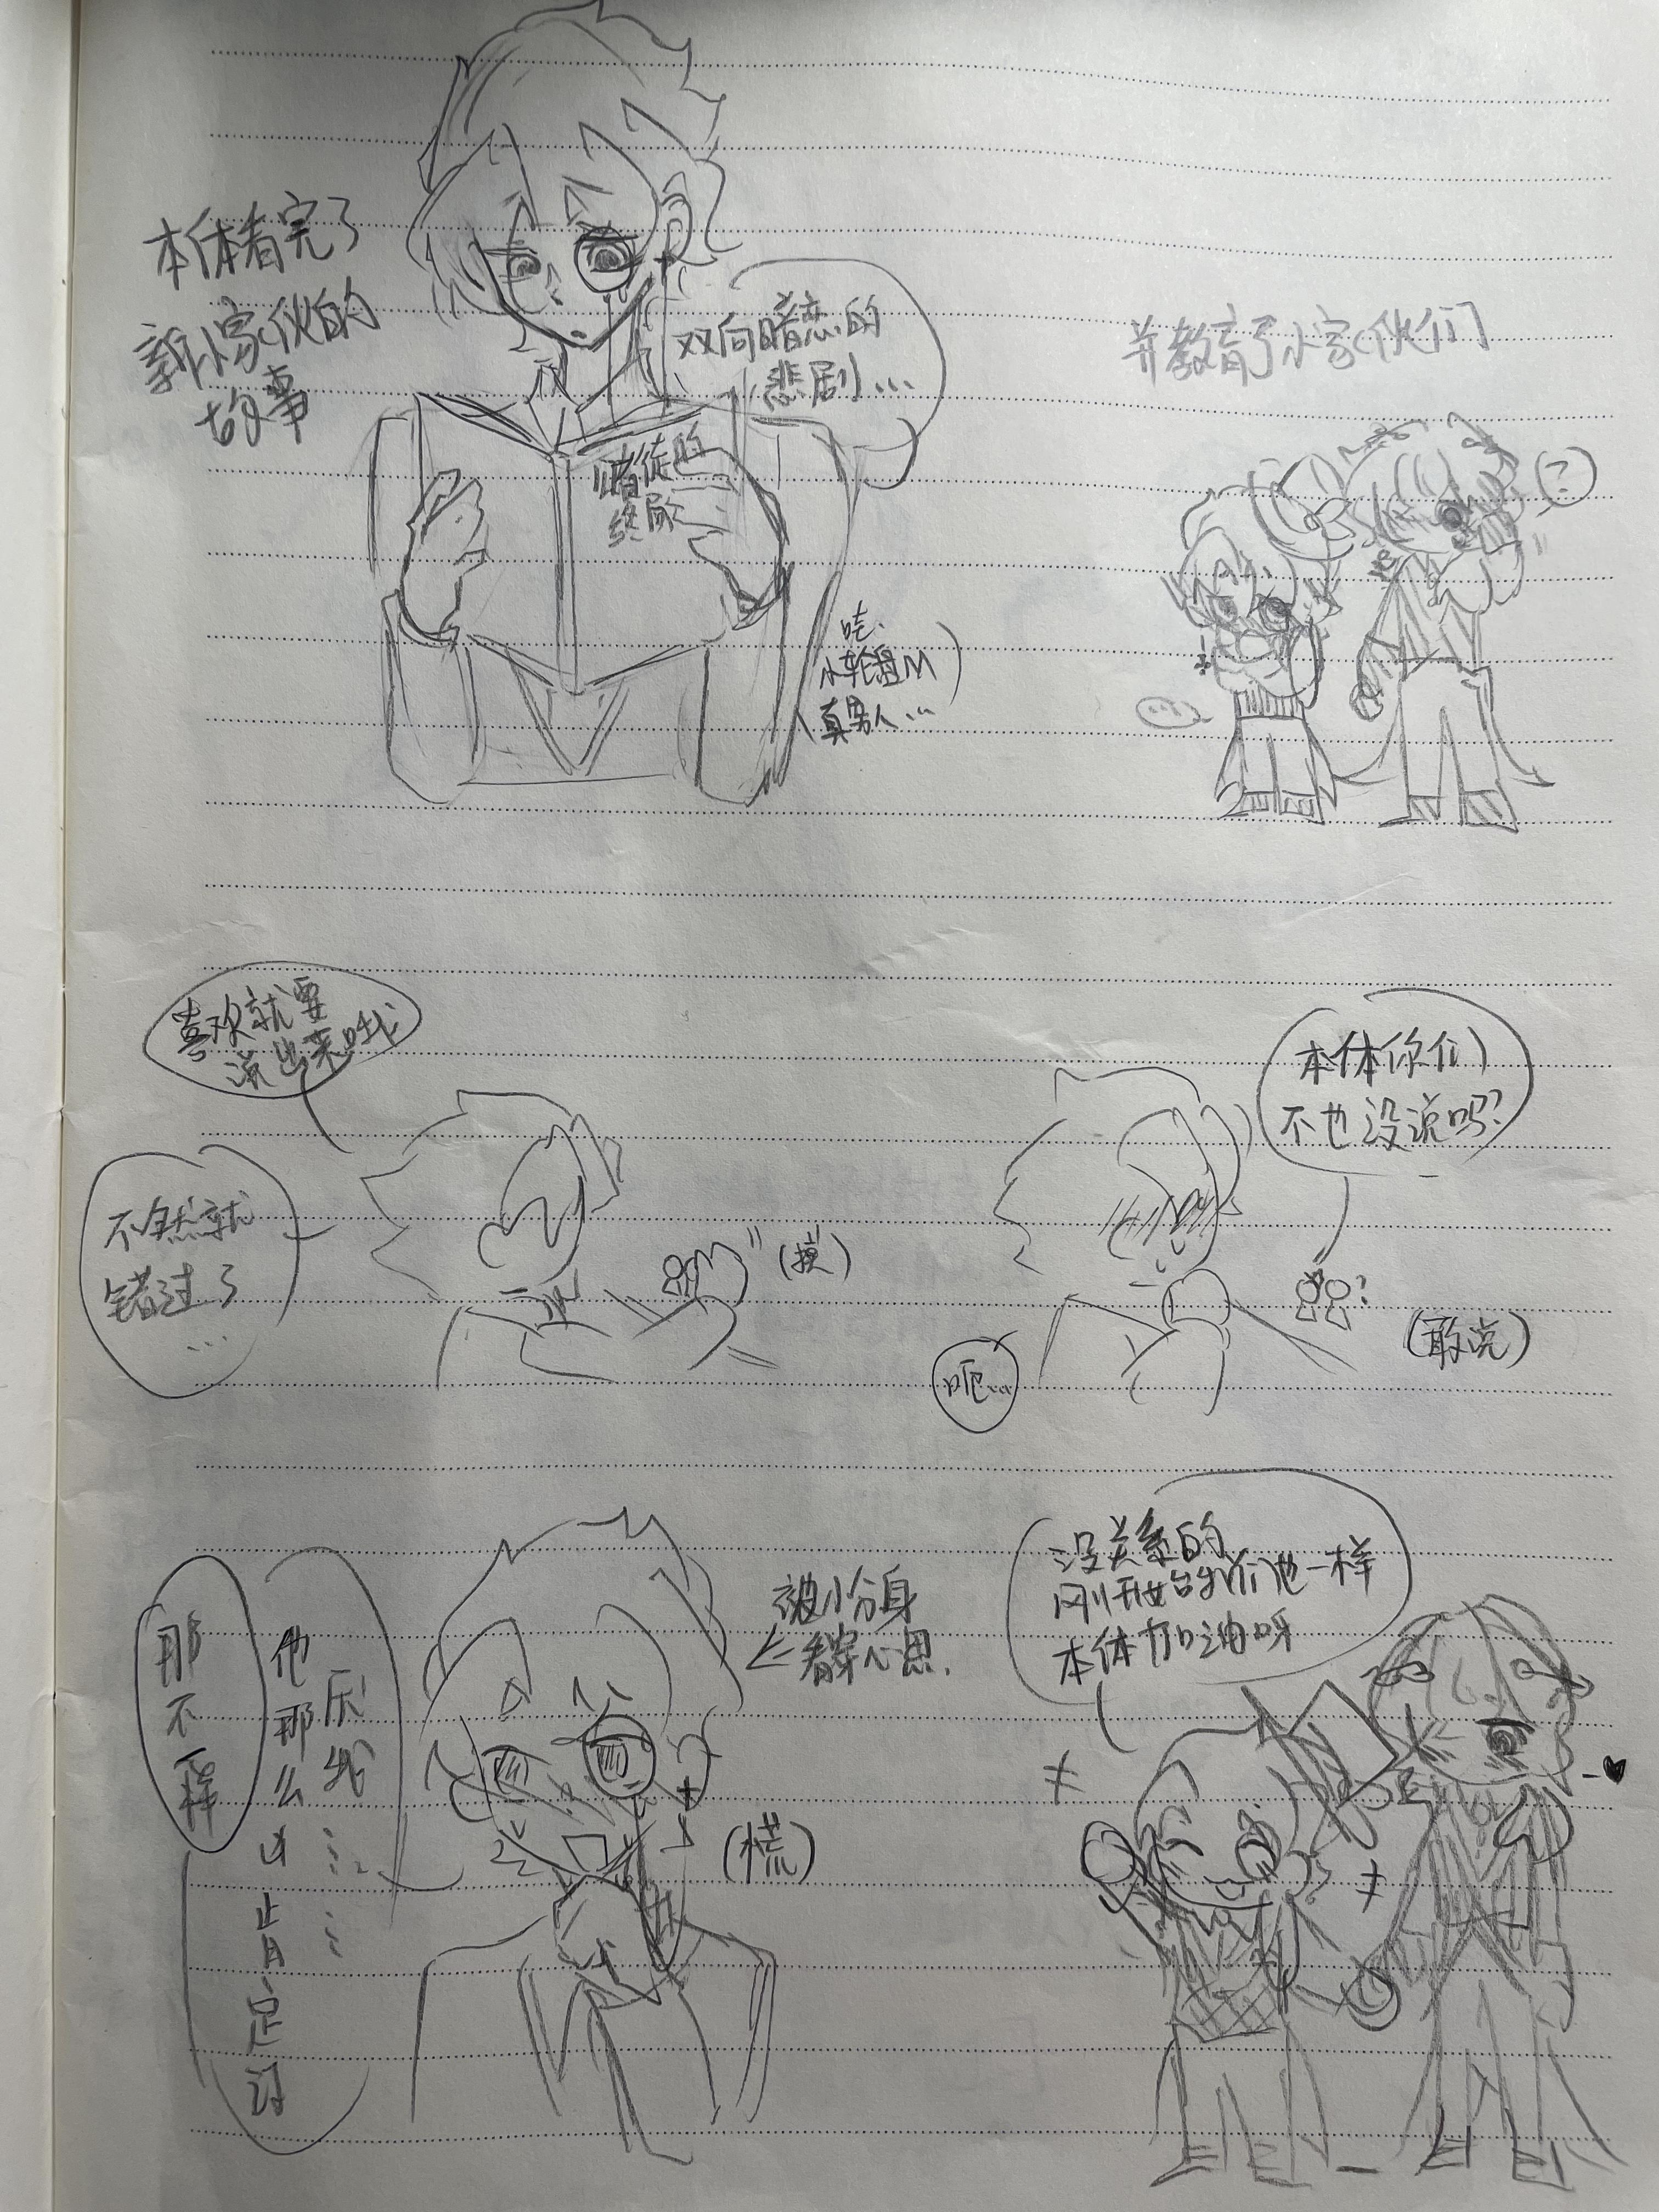 本体看完了
新小家伙的
故事
双向暗恋的
悲剧…
赌徒的
终局
哇、
小轮盘M
真男人…
并教育了小家伙们
?
喜欢就要
说出来哦
不然就
错过了
…
(摸)
本体你们
不也没说吗?
?
(敢说)
呃…
那不一样
他那么
讨厌我……
肯定
被小分身
看穿心思.
(慌)
没关系的
刚开始我们也一样
本体加油呀